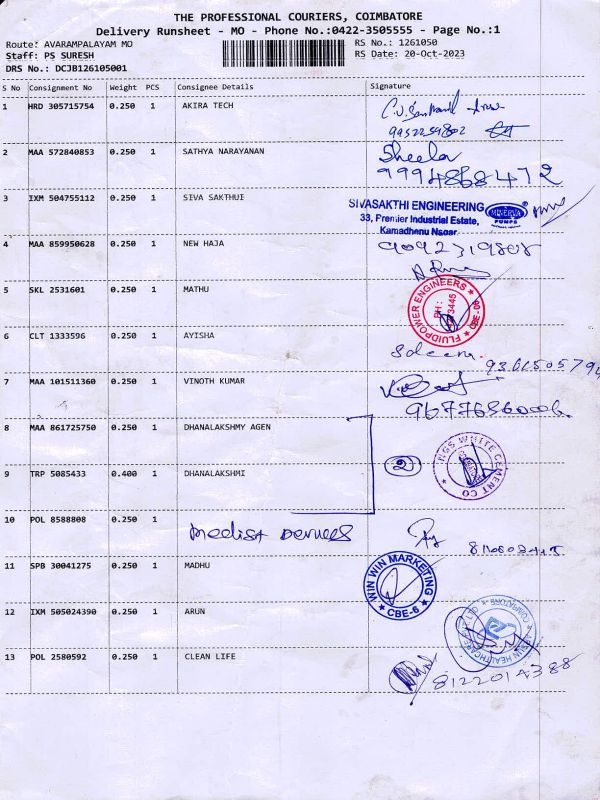 THE PROFESSIONAL COURIERS, COIMBATORE
Delivery Runsheet - MO - Phone No.:0422-3505555 - Page No.:1
Route: AVARAMPALAYAM MO RS No.: 1261050
Staff: PS SURESH RS Date: 20-Oct-2023
DRS No.: DCJB126105001
S No Consignment No Weight PCS Consignee Details Signature
1 HRD 305715754 0.250 1 AKIRA TECH
9952259802
2 MAA 572840853 0.250 1 SATHYA NARAYANAN Sheela
9994868472
3 IXM 504755112 0.250 1 SIVA SAKTHUI SIVASAKTHI ENGINEERING MINERVA PUMPS
33, Premier Industrial Estate,
Kamadhenu Nagar
4 MAA 859950628 0.250 1 NEW HAJA 9092319808
5 SKL 2531601 0.250 1 MATHU FLUIDPOWER ENGINEERS
PH :
CBE-09
6 CLT 1333596 0.250 1 AYISHA Saleem.
7 MAA 101511360 0.250 1 VINOTH KUMAR
8 MAA 861725750 0.250 1 DHANALAKSHMY AGEN
2 NGS WHITE CEMENT CO
9 TRP 5085433 0.400 1 DHANALAKSHMI
10 POL 8588808 0.250 1
11 SPB 30041275 0.250 1 MADHU WIN WIN MARKETING
CBE-6
12 IXM 505024390 0.250 1 ARUN
13 POL 2580592 0.250 1 CLEAN LIFE
8122014388